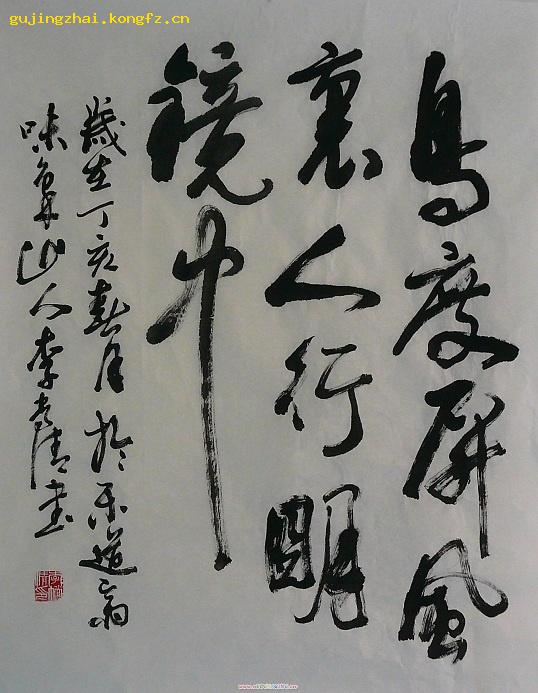 gujingzhai.kongfz.cn
鳥度屏風
裏人行明
鏡中
歲在丁亥春月於乐道斋
味象山人李